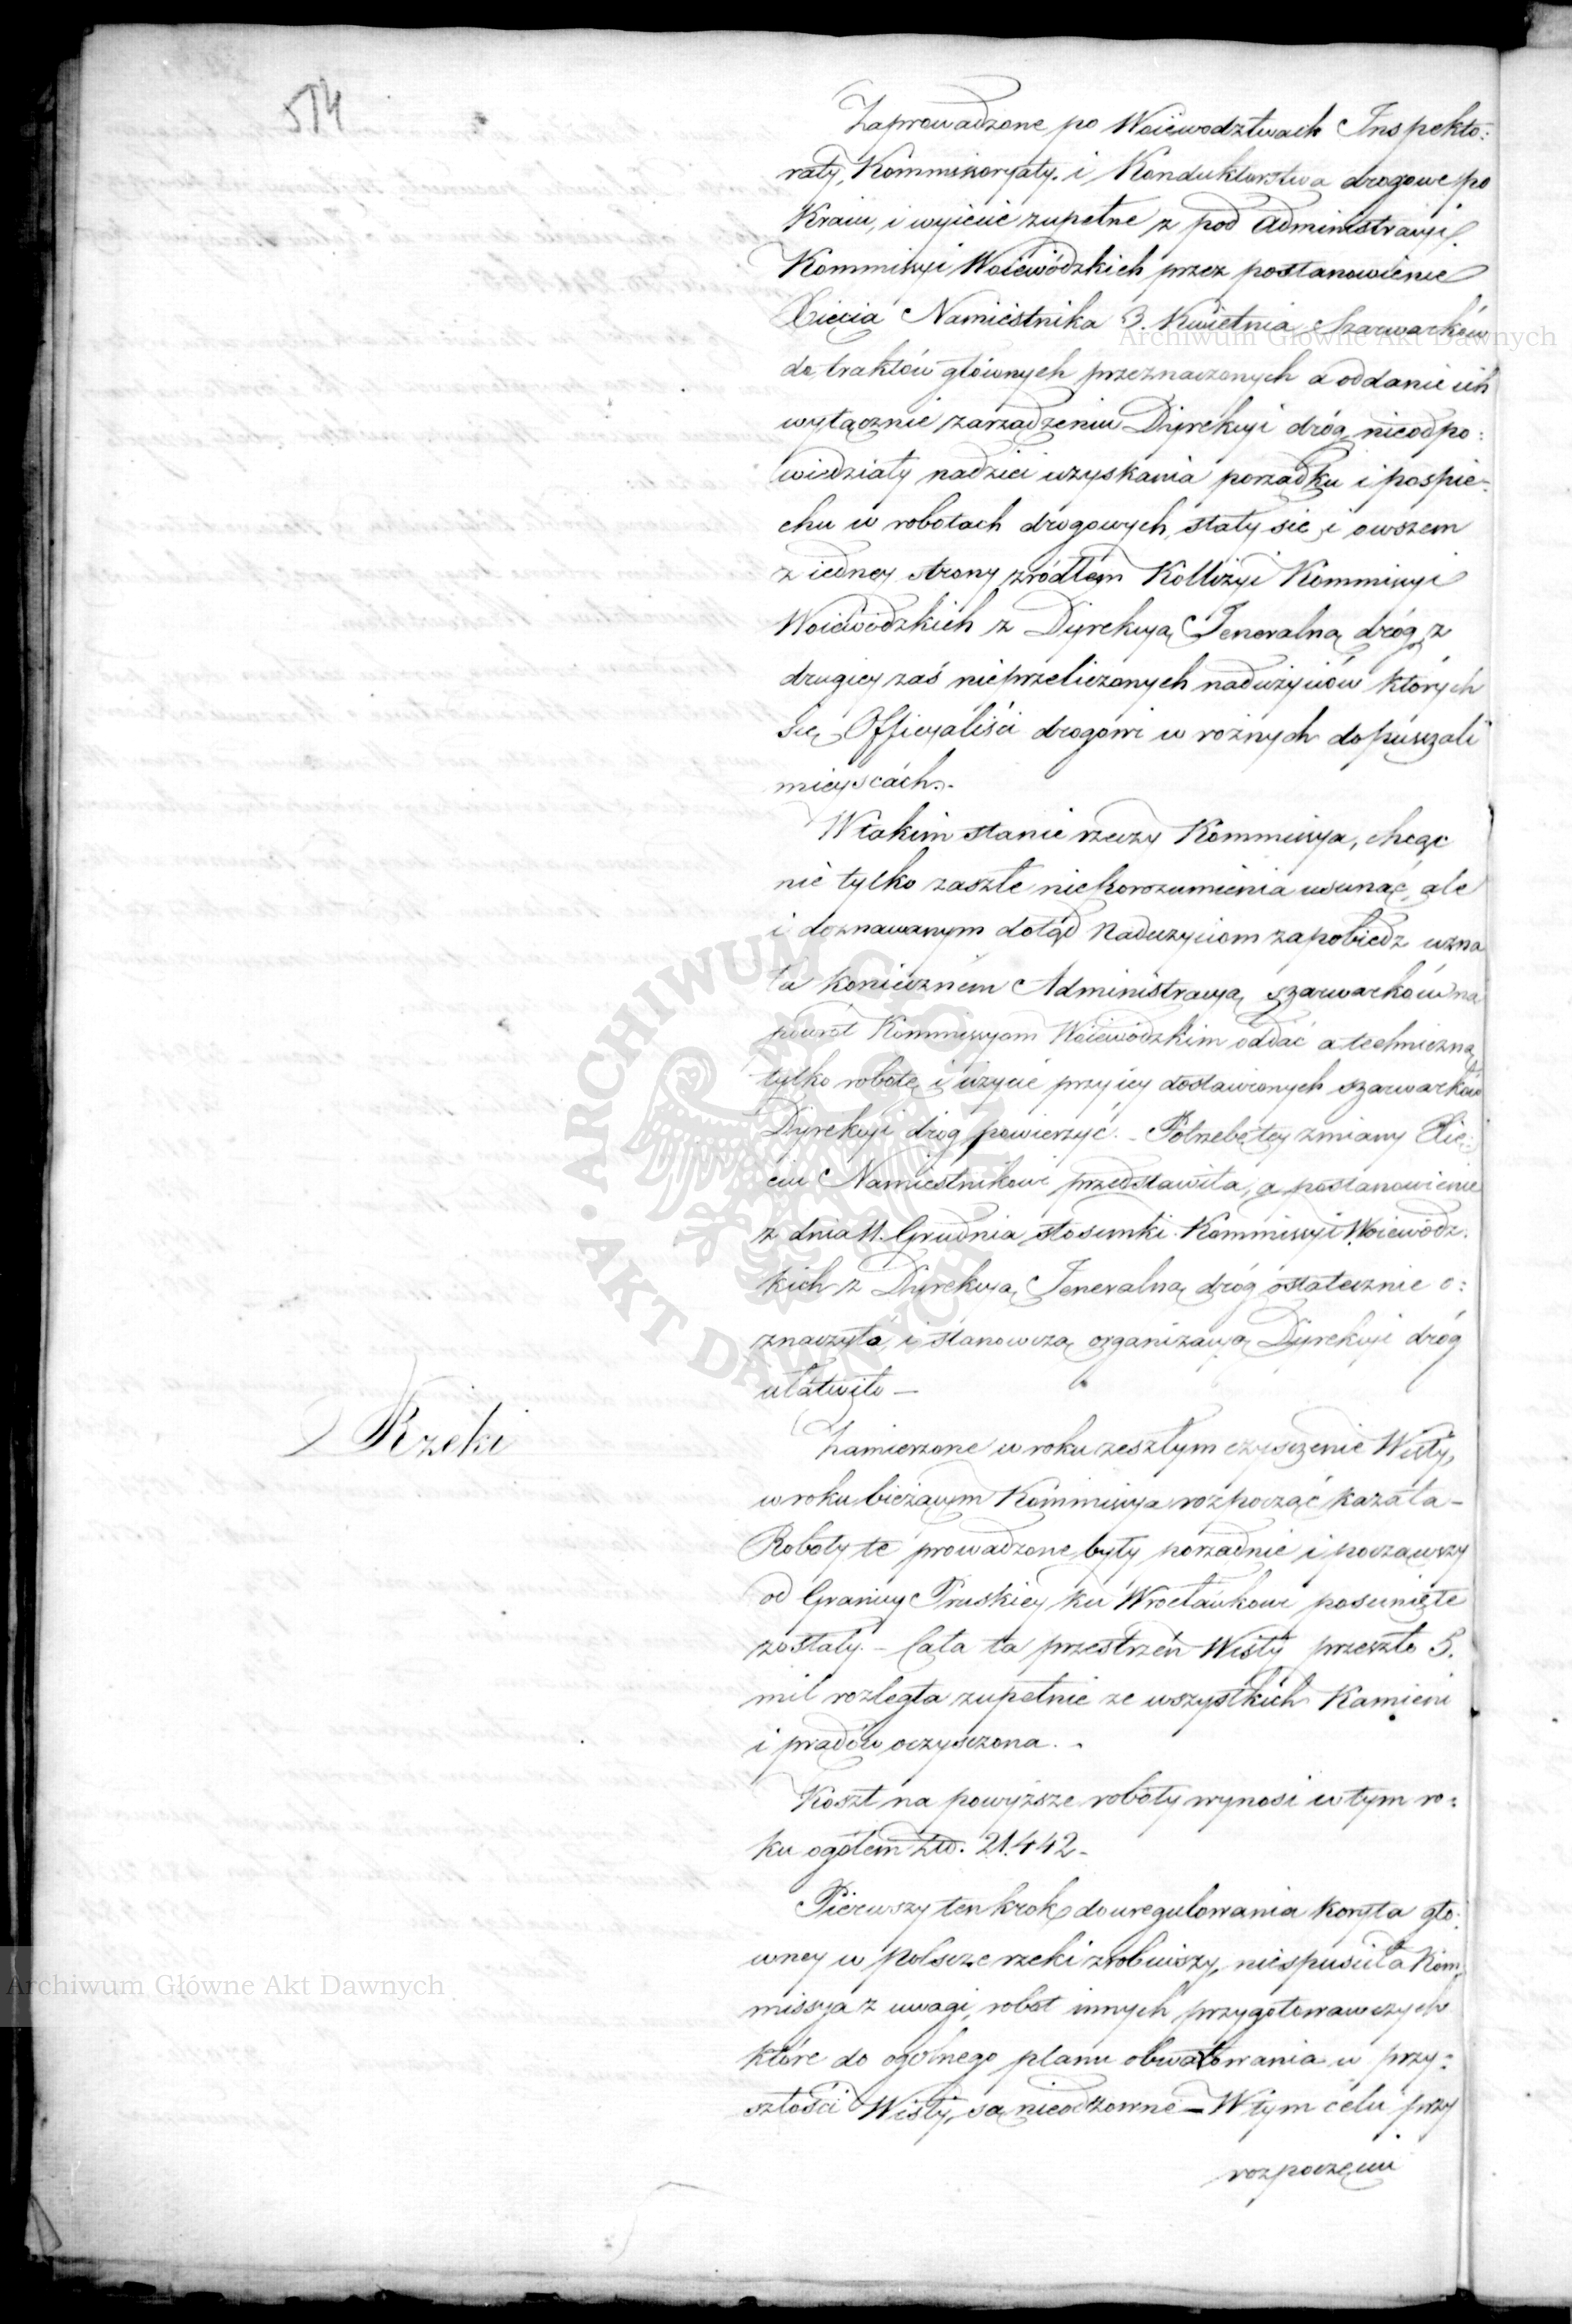 514
Zaprowadzone po Woiewodztwach Inspekto:
raty, Kommissoryaty i Konduktorstwa drogowe po
Kraiu, i wyięcie zupełne z pod Administracyi
Kommissyi Woiewódzkich przez postanowienie
Xięcia Namiestnika 3. Kwietnia Szarwarków
do traktów głównych przeznaczonych a oddanie ich
wyłącznie zarządzeniu Dyrekcyi dróg, nieodpo:
wiedziały nadziei uzyskania porządku i pospie-
chu w robotach drogowych, stały się i owszem
z iedney strony źródłem Kollizyi Kommissyi
Woiewódzkich z Dyrekcyą Jeneralną dróg, z
drugiey zaś nieprzeliczonych nadużyciów których
się Officyaliści drogowi w rożnych dopuszczali
mieyscach.-
W takim stanie rzeczy Kommissya, chcąc
nie tylko zaszłe nieporozumienia usunąć, ale
i doznawanym dotąd Nadużyciom zapobiedz uzna
ła koniecznem Administracyą szarwarków na
powrót Kommissyom Woiewódzkim oddać a techniczną
tylko robotę i użycie przy iey dostawionych szarwarków
Dyrekcyi dróg powierzyć. - Potrzebę tey zmiany Xię:
ciu Namiestnikowi przedstawiła, a postanowienie
z dnia 11. Grudnia stosunki Kommissyi Woiewódz:
kich z Dyrekcyą Jeneralną dróg ostatecznie o:
znaczyło, i stanowczą organizacyą Dyrekcyi dróg
ułatwiło —
Rzeki
Zamierzone w roku zeszłym czyszczenie Wisły,
w roku bieżącym Kommissya rozpocząć kazała -
Roboty te prowadzone były porządnie i począwszy
od Granicy Pruskiey ku Wrocławkowi posunięte
zostały. - Cała ta przestrzeń Wisły przeszło 5.
mil rozległa zupełnie ze wszystkich Kamieni
i prądów oczyszczona. -
Koszt na powyższe roboty wynosi w tym ro:
ku ogółem Złł. 21.442 -
Pierwszy ten krok do uregulowania koryta głó:
wney w Polszcze rzeki zrobiwszy, niespuściła Kom:
missya z uwagi, robot innych przygotowawczych
które do ogólnego planu obwałowania w przy:
szłości Wisły, są nieodzowne — W tym celu przy
rozpoczęciu
Archiwum Główne Akt Dawnych
Archiwum Główne Akt Dawnych
ARCHIWUM GŁÓWNE AKT DAWNYCH